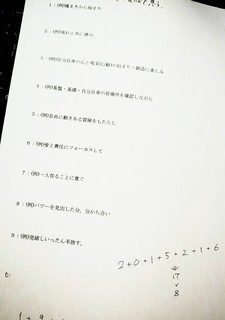 1：(例)種まきから始まり
2：(例)流れと共に進み
3：(例)自分自身の心と現実行動の始まり～創造に楽しみ
4：(例)基盤・基礎・自分自身の居場所を確認しながら
5：(例)自由に動きある冒険をもたらし
6：(例)愛と責任にフォーカスして
7：(例)一人在ることに寛ぐ
8：(例)パワーを見出した分、分かち合い
9：(例)完結しいったん手放す。
2+0+1+5+2+1+6
17
8